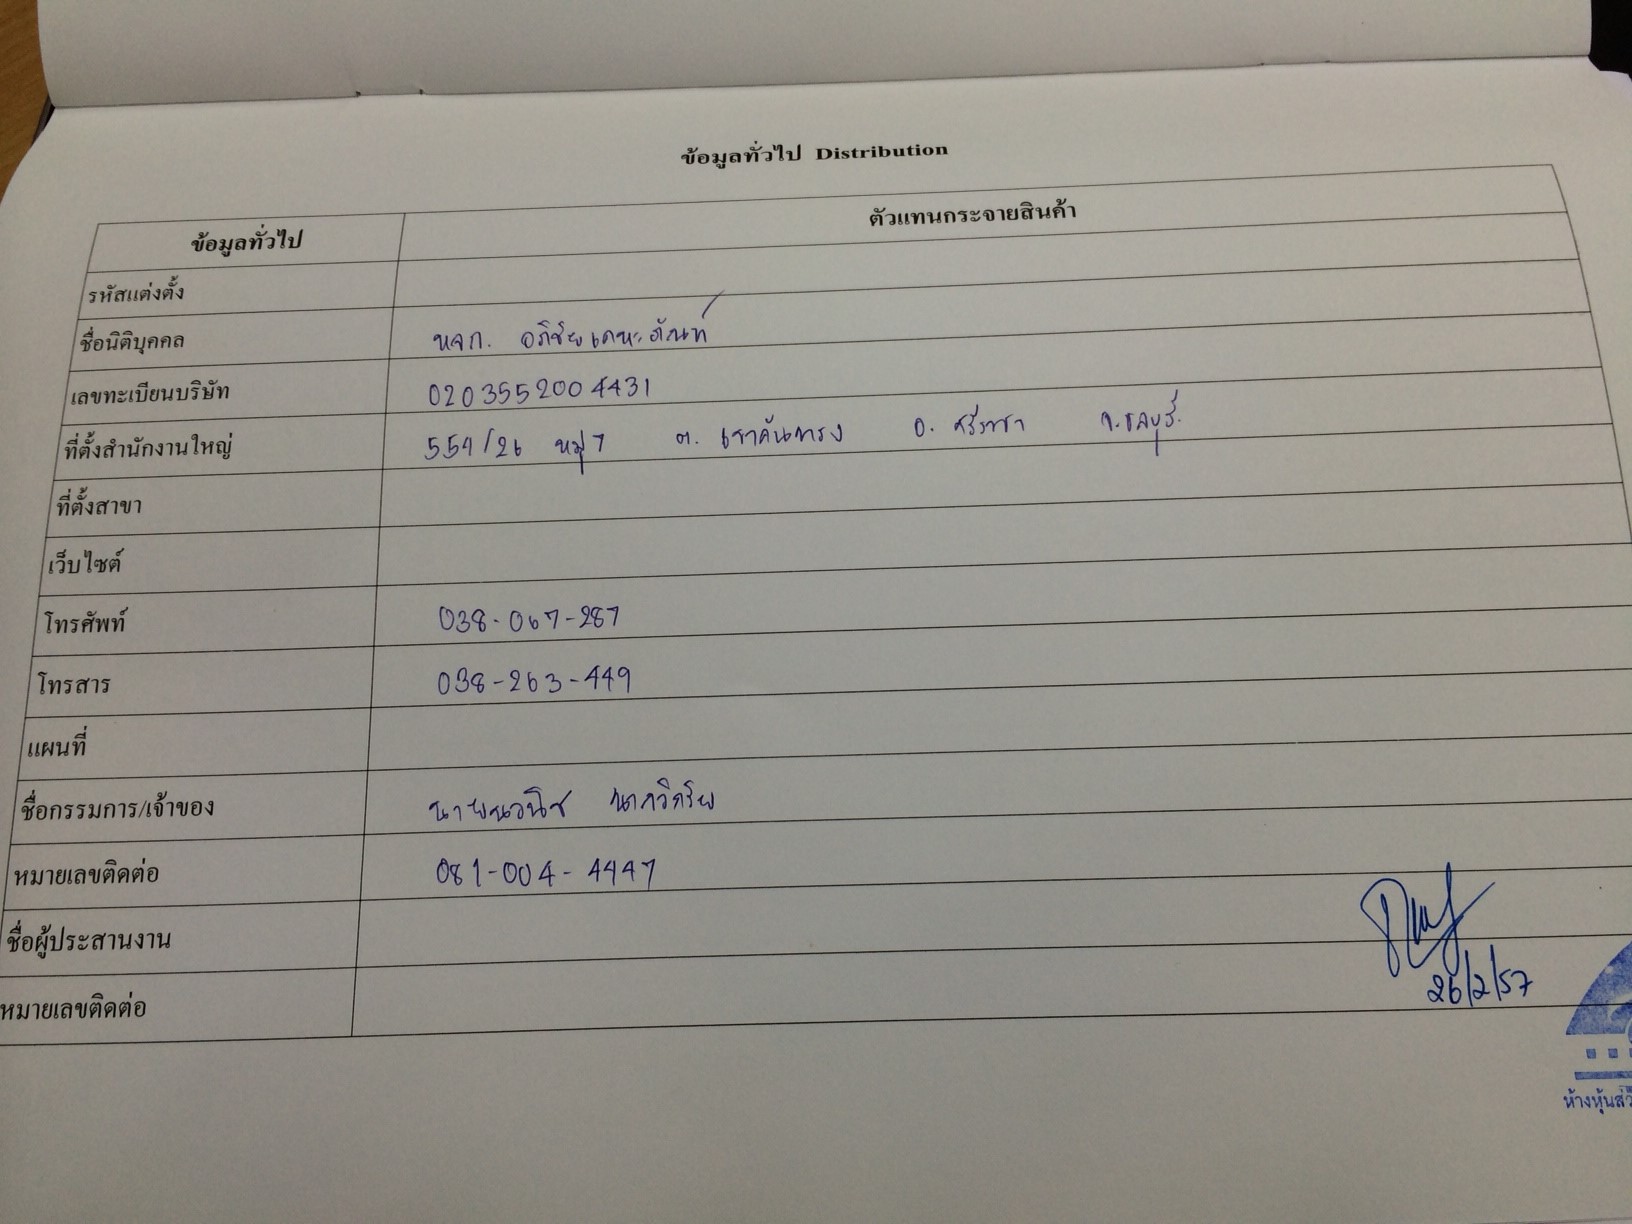 ข้อมูลทั่วไป Distribution
ข้อมูลทั่วไป ตัวแทนกระจายสินค้า
รหัสแต่งตั้ง
ชื่อนิติบุคคล หจก. อภิชัยเคหะภัณฑ์
เลขทะเบียนบริษัท 0203552004431
ที่ตั้งสำนักงานใหญ่ 559/26 หมู่ 7 ต. เขาคันทรง อ. ศรีราชา จ.ชลบุรี.
ที่ตั้งสาขา
เว็บไซต์
โทรศัพท์ 038-067-287
โทรสาร 038-263-449
แผนที่
ชื่อกรรมการ/เจ้าของ
หมายเลขติดต่อ 081-004-4447
ชื่อผู้ประสานงาน
หมายเลขติดต่อ
26/2/57